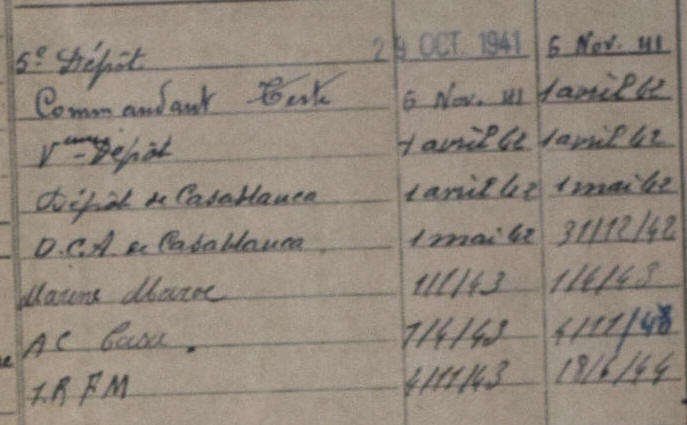 5e Dépôt 29 OCT. 1941 6 Nov. 41
Commandant Teste 6 Nov. 41 1 avril 42
Vème Dépôt 1 avril 42 1 avril 42
Dépôt de Casablanca 1 avril 42 1 mai 42
D.C.A de Casablanca 1 mai 42 31/12/42
Marine Maroc 1/1/43 1/4/43
AC Casa. 1/4/43 4/11/43
1.R F M 4/11/43 18/6/44